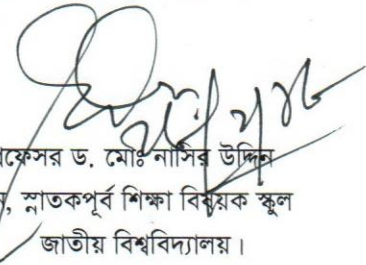 ড. মোঃ নাসির উদ্দিন
স্নাতকপূর্ব শিক্ষা বিষয়ক স্কুল
জাতীয় বিশ্ববিদ্যালয়।